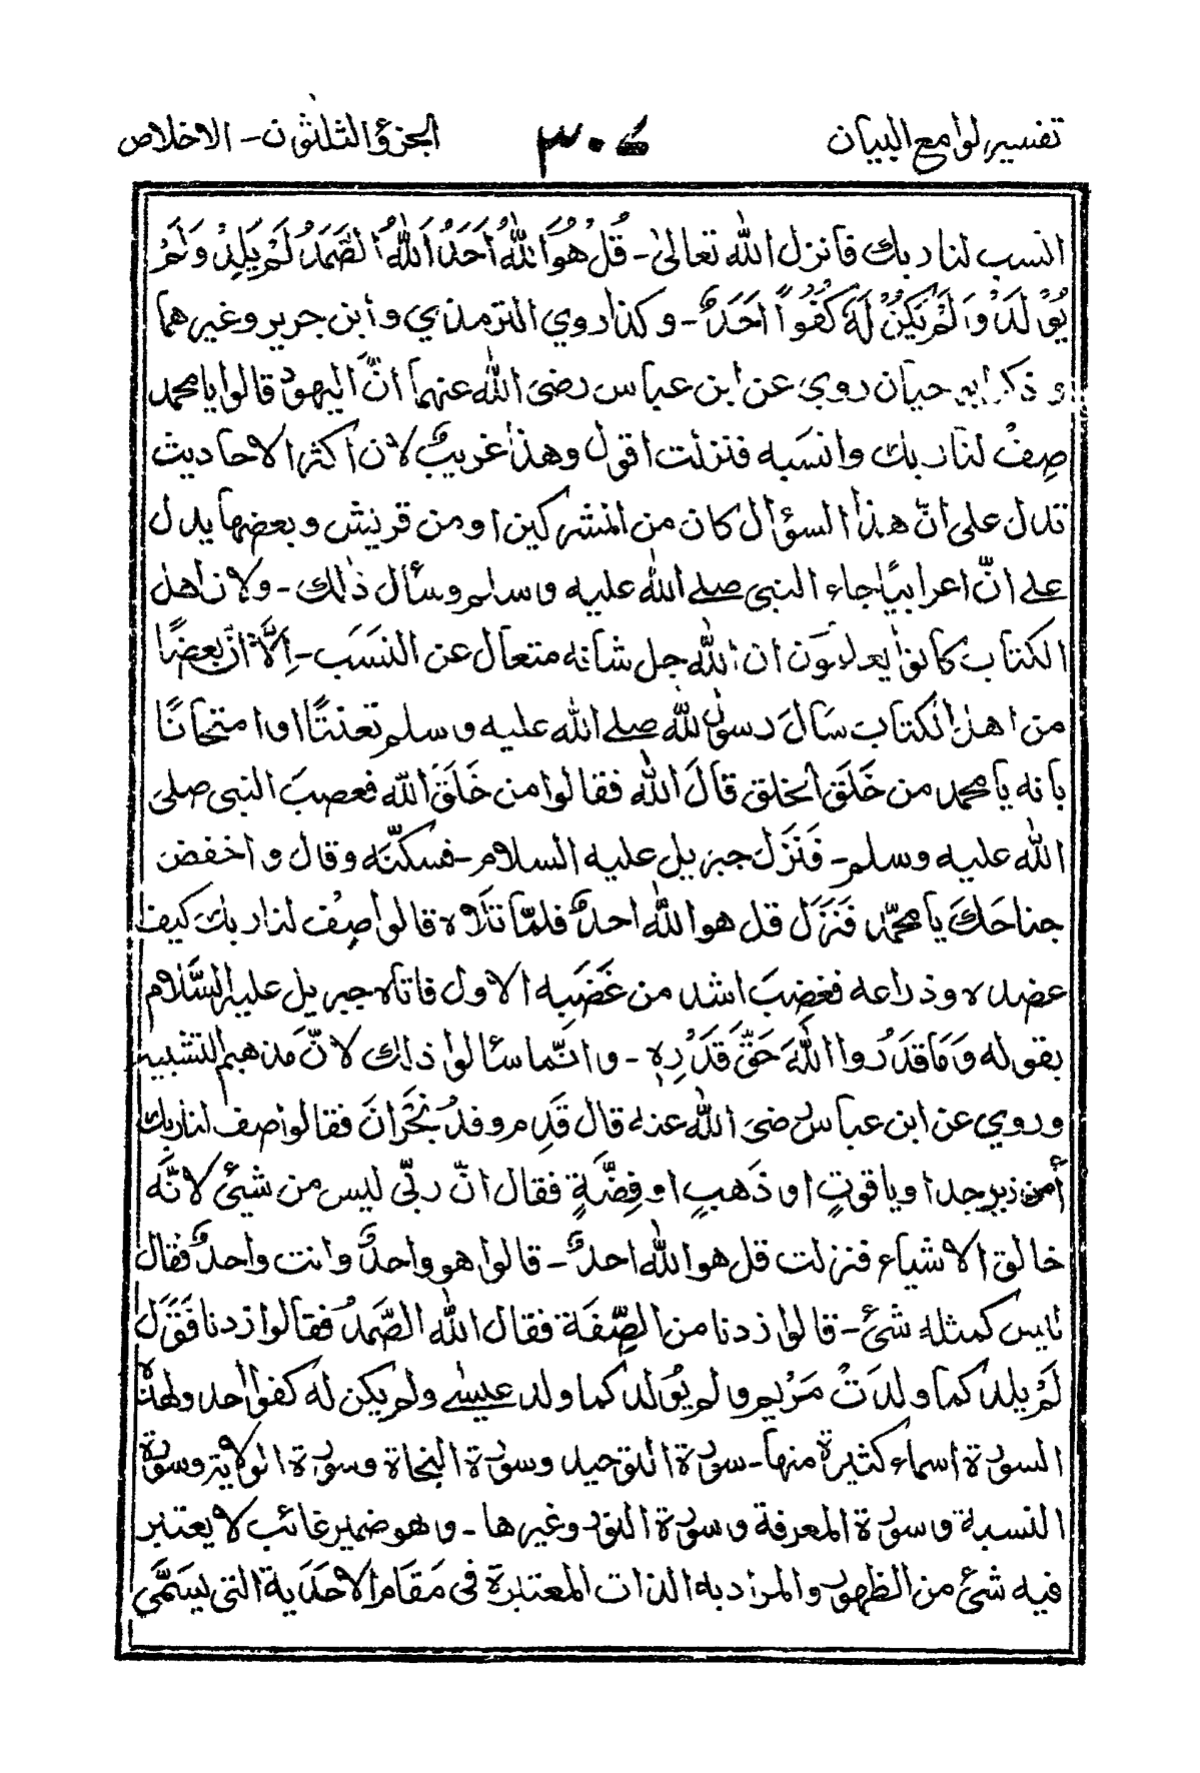 تفسير لوامع البيان ٣٠٤ الجزؤ الثلثون - الاخلاص
انسب لنا ربك فانزل الله تعالىٰ - قُلْ هُوَ اللهُ اَحَدٌ اَللهُ الصَّمَدُ لَمْ يَلِدْ وَلَمْ
يُوْلَدْ وَلَمْ يَكُنْ لَهٗ كُفُوًا اَحَدٌ - وكذا روي الترمذي وابن جرير وغيرهما
وذكر ابو حيان روي عن ابن عباس رضى الله عنهما انّ اليهود قالوا يا محمد
صِفْ لنا ربك وانسَبه فنزلت اقول وهذا غريبٌ لان اكثر الاحاديث
تدل على انّ هذا السؤال كان من المشركين او من قريش وبعضها يدل
على انّ اعرابيًا جاء النبى صلے الله عليه وسلم وسأل ذلك - ولان اهل
الكتاب كانوا يعلمون ان الله جل شانه متعال عن النَسَب - اِلاَّ انّ بعضًا
من اهل الكتاب سَالَ رسول الله صلے الله عليه وسلم تعنتًا او امتحانًا
بانه يا محمد من خَلَقَ الخلق قالَ الله فقالوا من خَلَقَ الله فعصبَ النبى صلى
الله عليه وسلم - فَنَزَلَ جبريل عليه السلام - فسكنّه وقال واخفض
جناحَكَ يا محمّد فَنَزَلَ قل هو الله احدٌ فلمّا تَلاه قالوا صِفْ لنا ربك كيف
عضده وذراعه فغضِبَ اشد من غَضَبِه الاول فاتاه جبريل عليه السَّلام
بقوله وَمَا قَدَرُوا اللهَ حَقَّ قَدْرِهٖ - وانّما سئالوا ذلك لانّ مذهبهم التشبيه
وروي عن ابن عباس رضى الله عنه قال قَدِم وفدُ نَجْرَانَ فقالوا صف لنا ربك
أمن زبرجد او ياقوتٍ او ذَهبٍ او فِضَّةٍ فقال انّ ربّى ليس من شيئ لانَّه
خالق الاشياء فنزلت قل هو الله احدٌ - قالوا هو واحدٌ وانت واحدٌ فقال
ليس كمثله شئ - قالوا زدنا من الصِّفَة فقال الله الصَّمدُ فقالوا زدنا فَنَزَلَ
لَمْ يلد كما ولدَتْ مَرْيم ولم يُولد كما ولد عيسے ولم يكن له كفوا احد ولهذه
السورة اسماء كثيرةٌ منها - سورة التوحيد وسورة النجاة وسورة الولاية وسورة
النسبة وسورة المعرفة وسورة النور وغيرها - وهو ضمير غائب لا يعتبر
فيه شئ من الظهور والمراد به الذات المعتبرة فى مَقَام الاحَدَية التى يسَمَّى